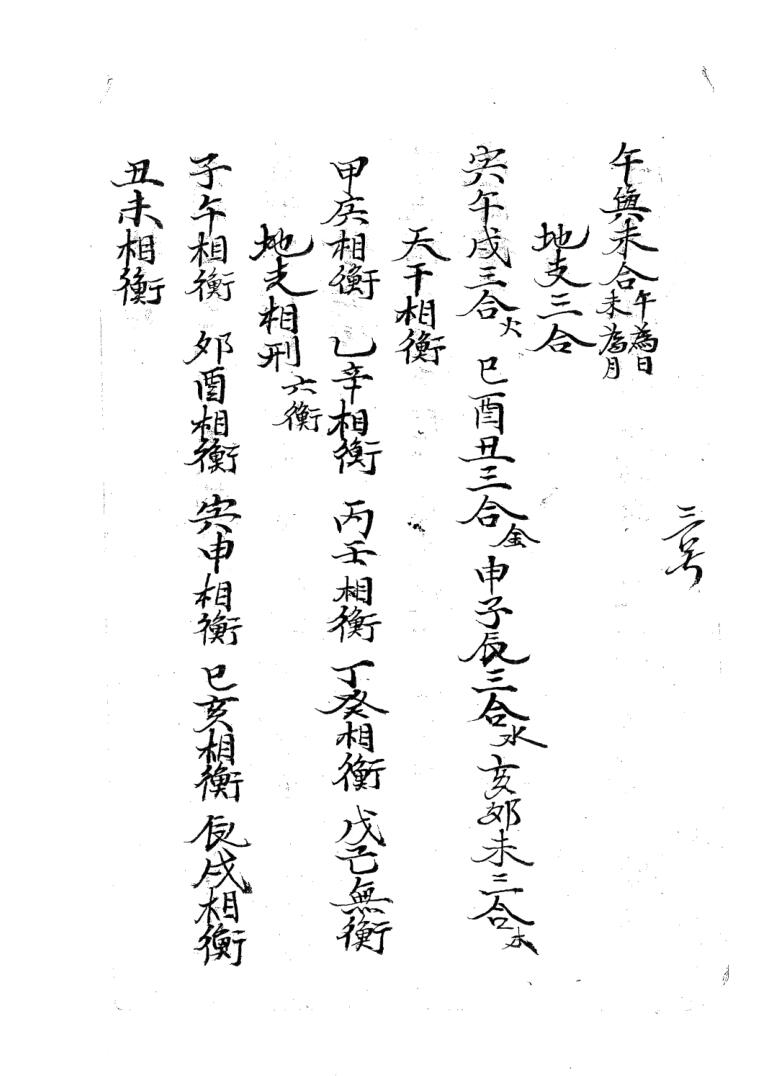 三号
午與未合 午為日 未為月
地支三合
寅午戌三合火 巳酉丑三合金 申子辰三合水 亥卯未三合木
天干相衡
甲庚相衡 乙辛相衡 丙壬相衡 丁癸相衡 戊己無衡
地支相刑 六衡
子午相衡 卯酉相衡 寅申相衡 巳亥相衡 辰戌相衡
丑未相衡